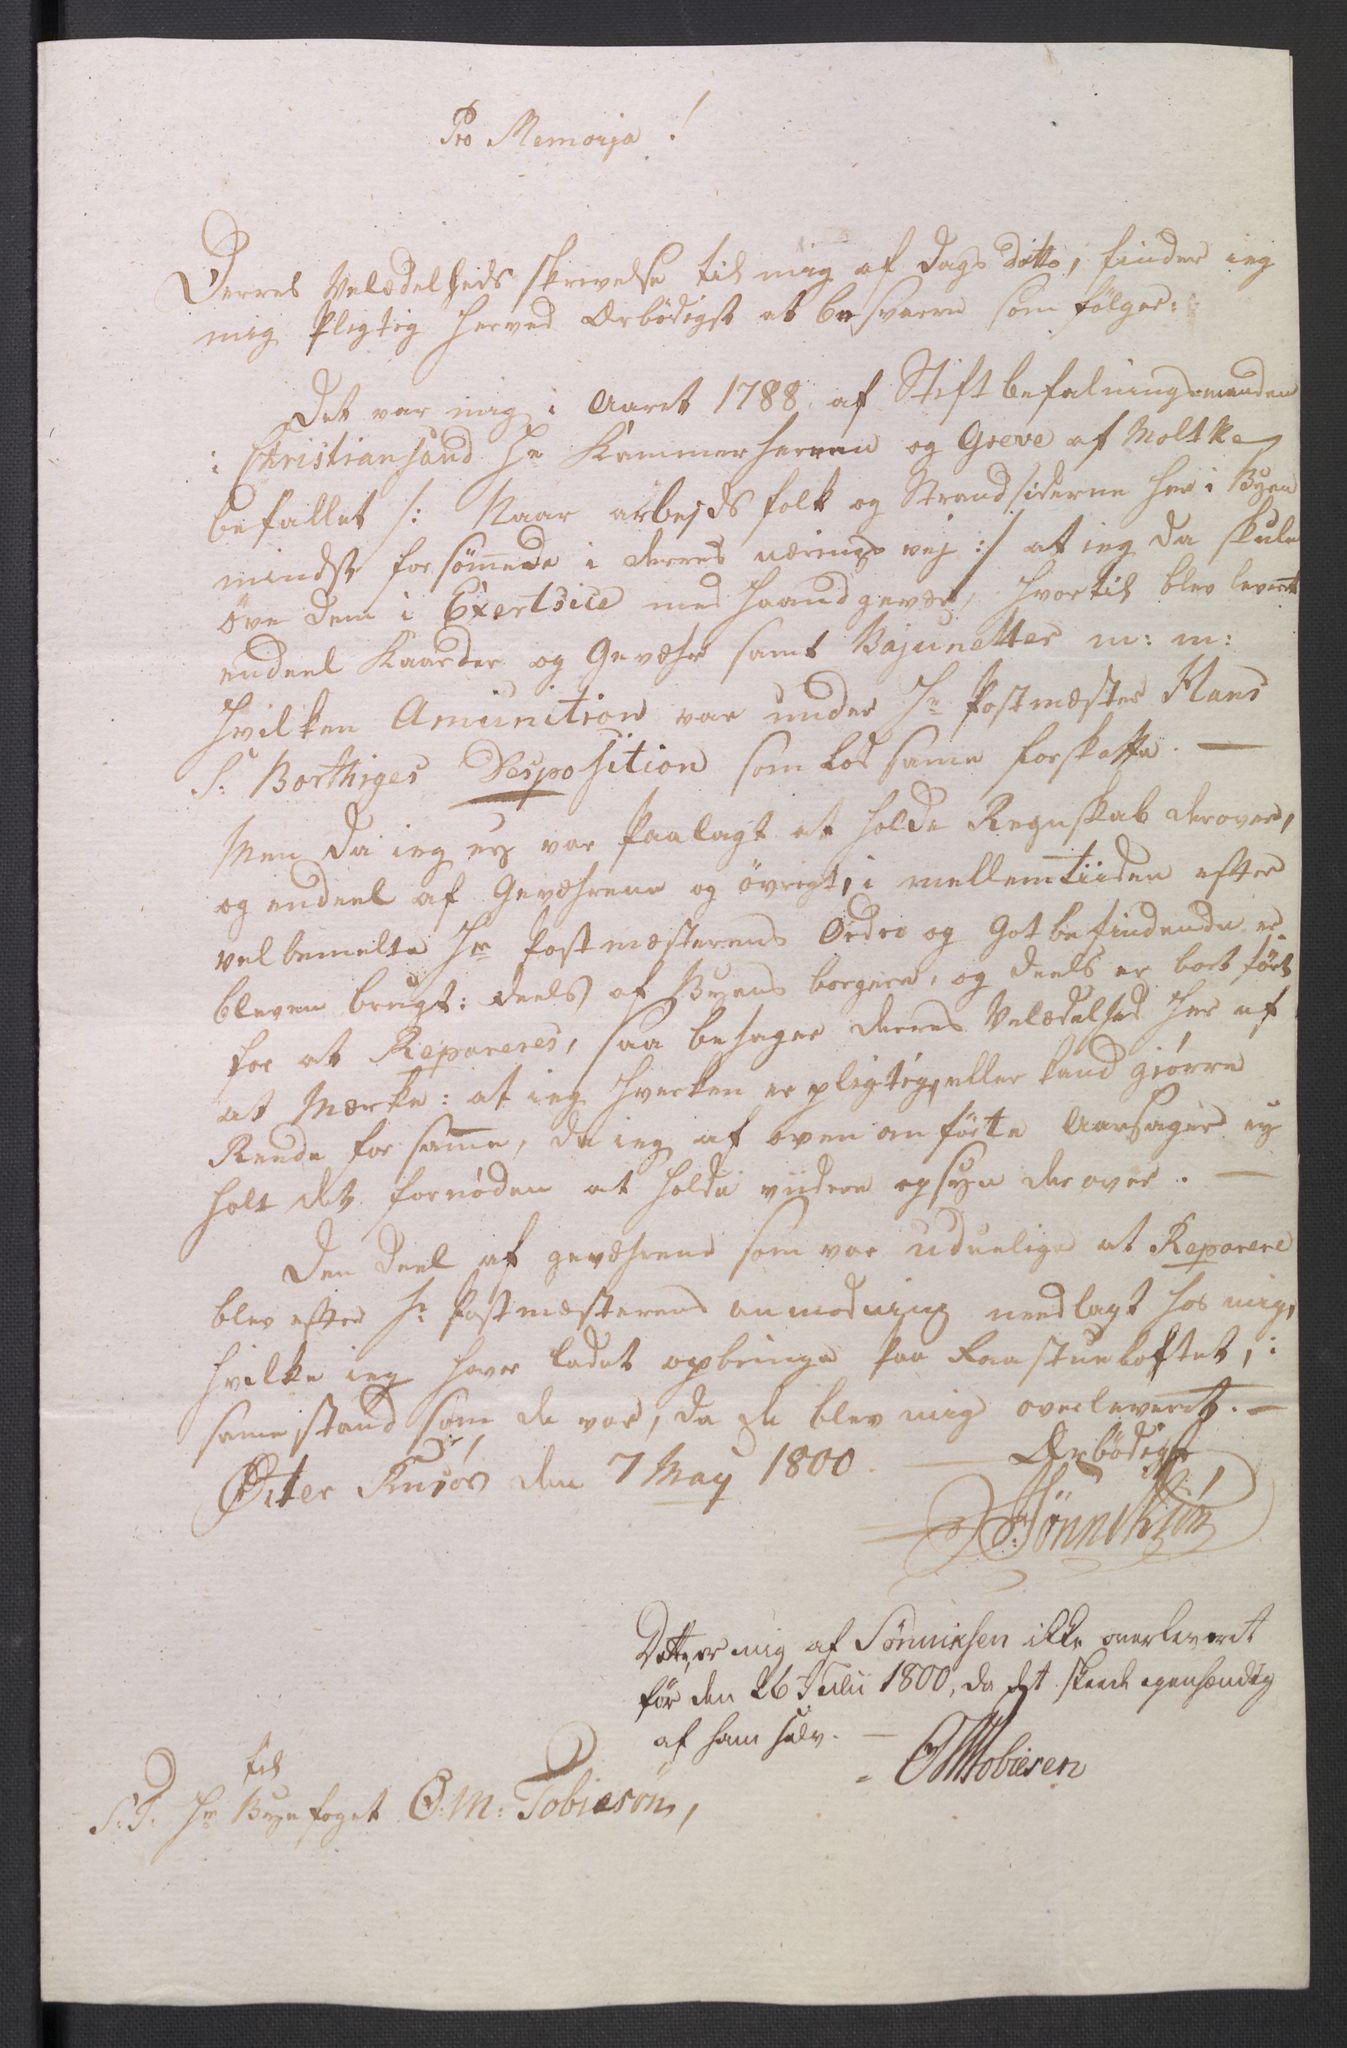 Pro Memorja!
Derres Velædelheds skrivelse til mig af Dags Datto, finder ieg
mig Pligtig herved Ærbödigst at besvare som fölger:
Det var mig i Aaret 1788 af Stiftbefalningsmanden
i Christiansand Hr Kammerherren og Greve af Moltke
befallet /: Naar arbejds folk og Strandsiderne her i Byen
mindst forsömmede i derres nærings vej :/ at ieg da skule
öve dem i Exertsice med haandgevær, hvortil blev levert
endeel Kaarder og Gevæhr samt Bajunetter m: m:
hvilken Amunition var under Hr Postmæster Hans
S: Borthiges Desposition som lod same forskaffe. —
Men da ieg ey var Paalagt at holde Regnskab derover,
og endeel af Gevæhrene og övrigt, i mellemtiiden efter
velbemelte Hr Postmæsterens Ordre og Gotbefindende er
bleven brugt: deels af Byens borgere, og deels er bort fört
for at Repareres, saa behager derres Velædelhed her af
at Mærke: at ieg hverken er pligtig, eller kand giörre
Reede for same, da ieg af oven anförte Aarsager ey
holt det fornöden at holde viidere opsyn der over. —
Den deel af gevæhrene som var uduelige at Reparere
blev efter Hr Postmæsterens anmodning needlagt hos mig,
hvilke ieg haver ladet opbringe paa Raastueloftet, i
same stand som de var, da de blev mig overleveret. —
Öster Riisöer den 7 May 1800. — Ærbödigst
Sönnichsön
Dette er mig af Sönnichsen ikke overleveret
för den 26 Julii 1800, da det skeede egenhændig
af ham selv. —
OMTobiesen
til
S. T. Hr Byefoget O: M: Tobiesön,